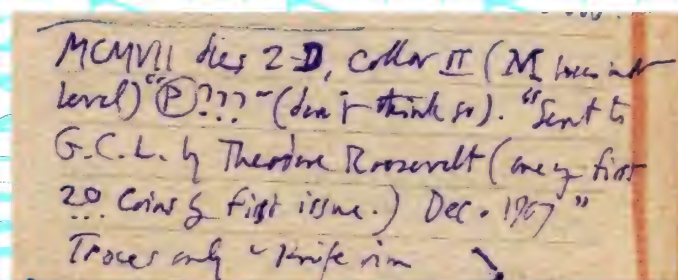 MCMVII dies 2-D, collar II (M was not
level) "Ⓟ???" (don't think so). "Sent to
G.C.L. by Theodore Roosevelt (one of first
20 coins of first issue.) Dec. 1907"
Traces only - Knife rim